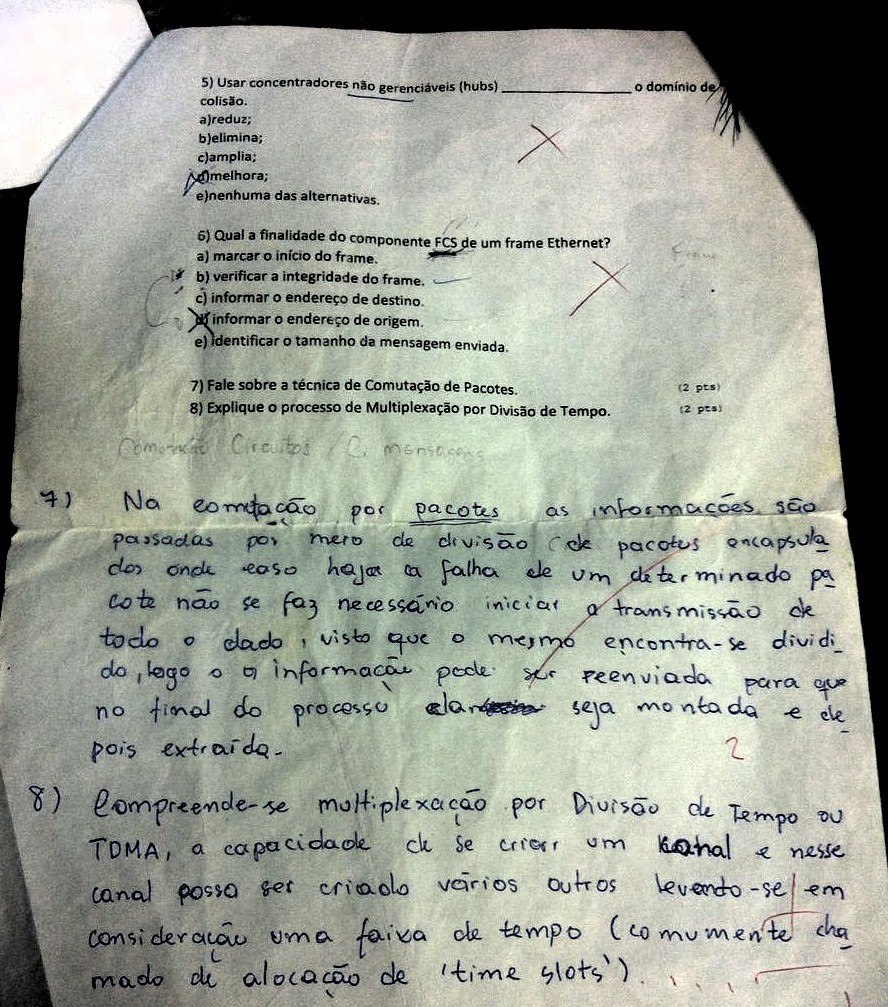 5) Usar concentradores não gerenciáveis (hubs) ____________________ o domínio de
colisão.
a)reduz;
b)elimina;
c)amplia;
d)melhora;
e)nenhuma das alternativas.
6) Qual a finalidade do componente FCS de um frame Ethernet?
a) marcar o início do frame.
b) verificar a integridade do frame.
c) informar o endereço de destino.
d) informar o endereço de origem.
e) identificar o tamanho da mensagem enviada.
7) Fale sobre a técnica de Comutação de Pacotes. (2 pts)
8) Explique o processo de Multiplexação por Divisão de Tempo. (2 pts)
Comutação Circuitos / C. mensagens
7) Na comutação por pacotes as informações são
passadas por meio de divisão de pacotes encapsula
dos onde caso haja a falha de um determinado pa
cote não se faz necessário iniciar a transmissão de
todo o dado, visto que o mesmo encontra-se dividi_
do, logo a informação pode ser reenviada para que
no final do processo seja montada e de
pois extraída.
2
8) Compreende-se multiplexação por Divisão de Tempo ou
TDMA, a capacidade de se criar um kanal e nesse
canal possa ser criado vários outros levando-se em
consideração uma faixa de tempo (comumente cha
mado de alocação de 'time slots').